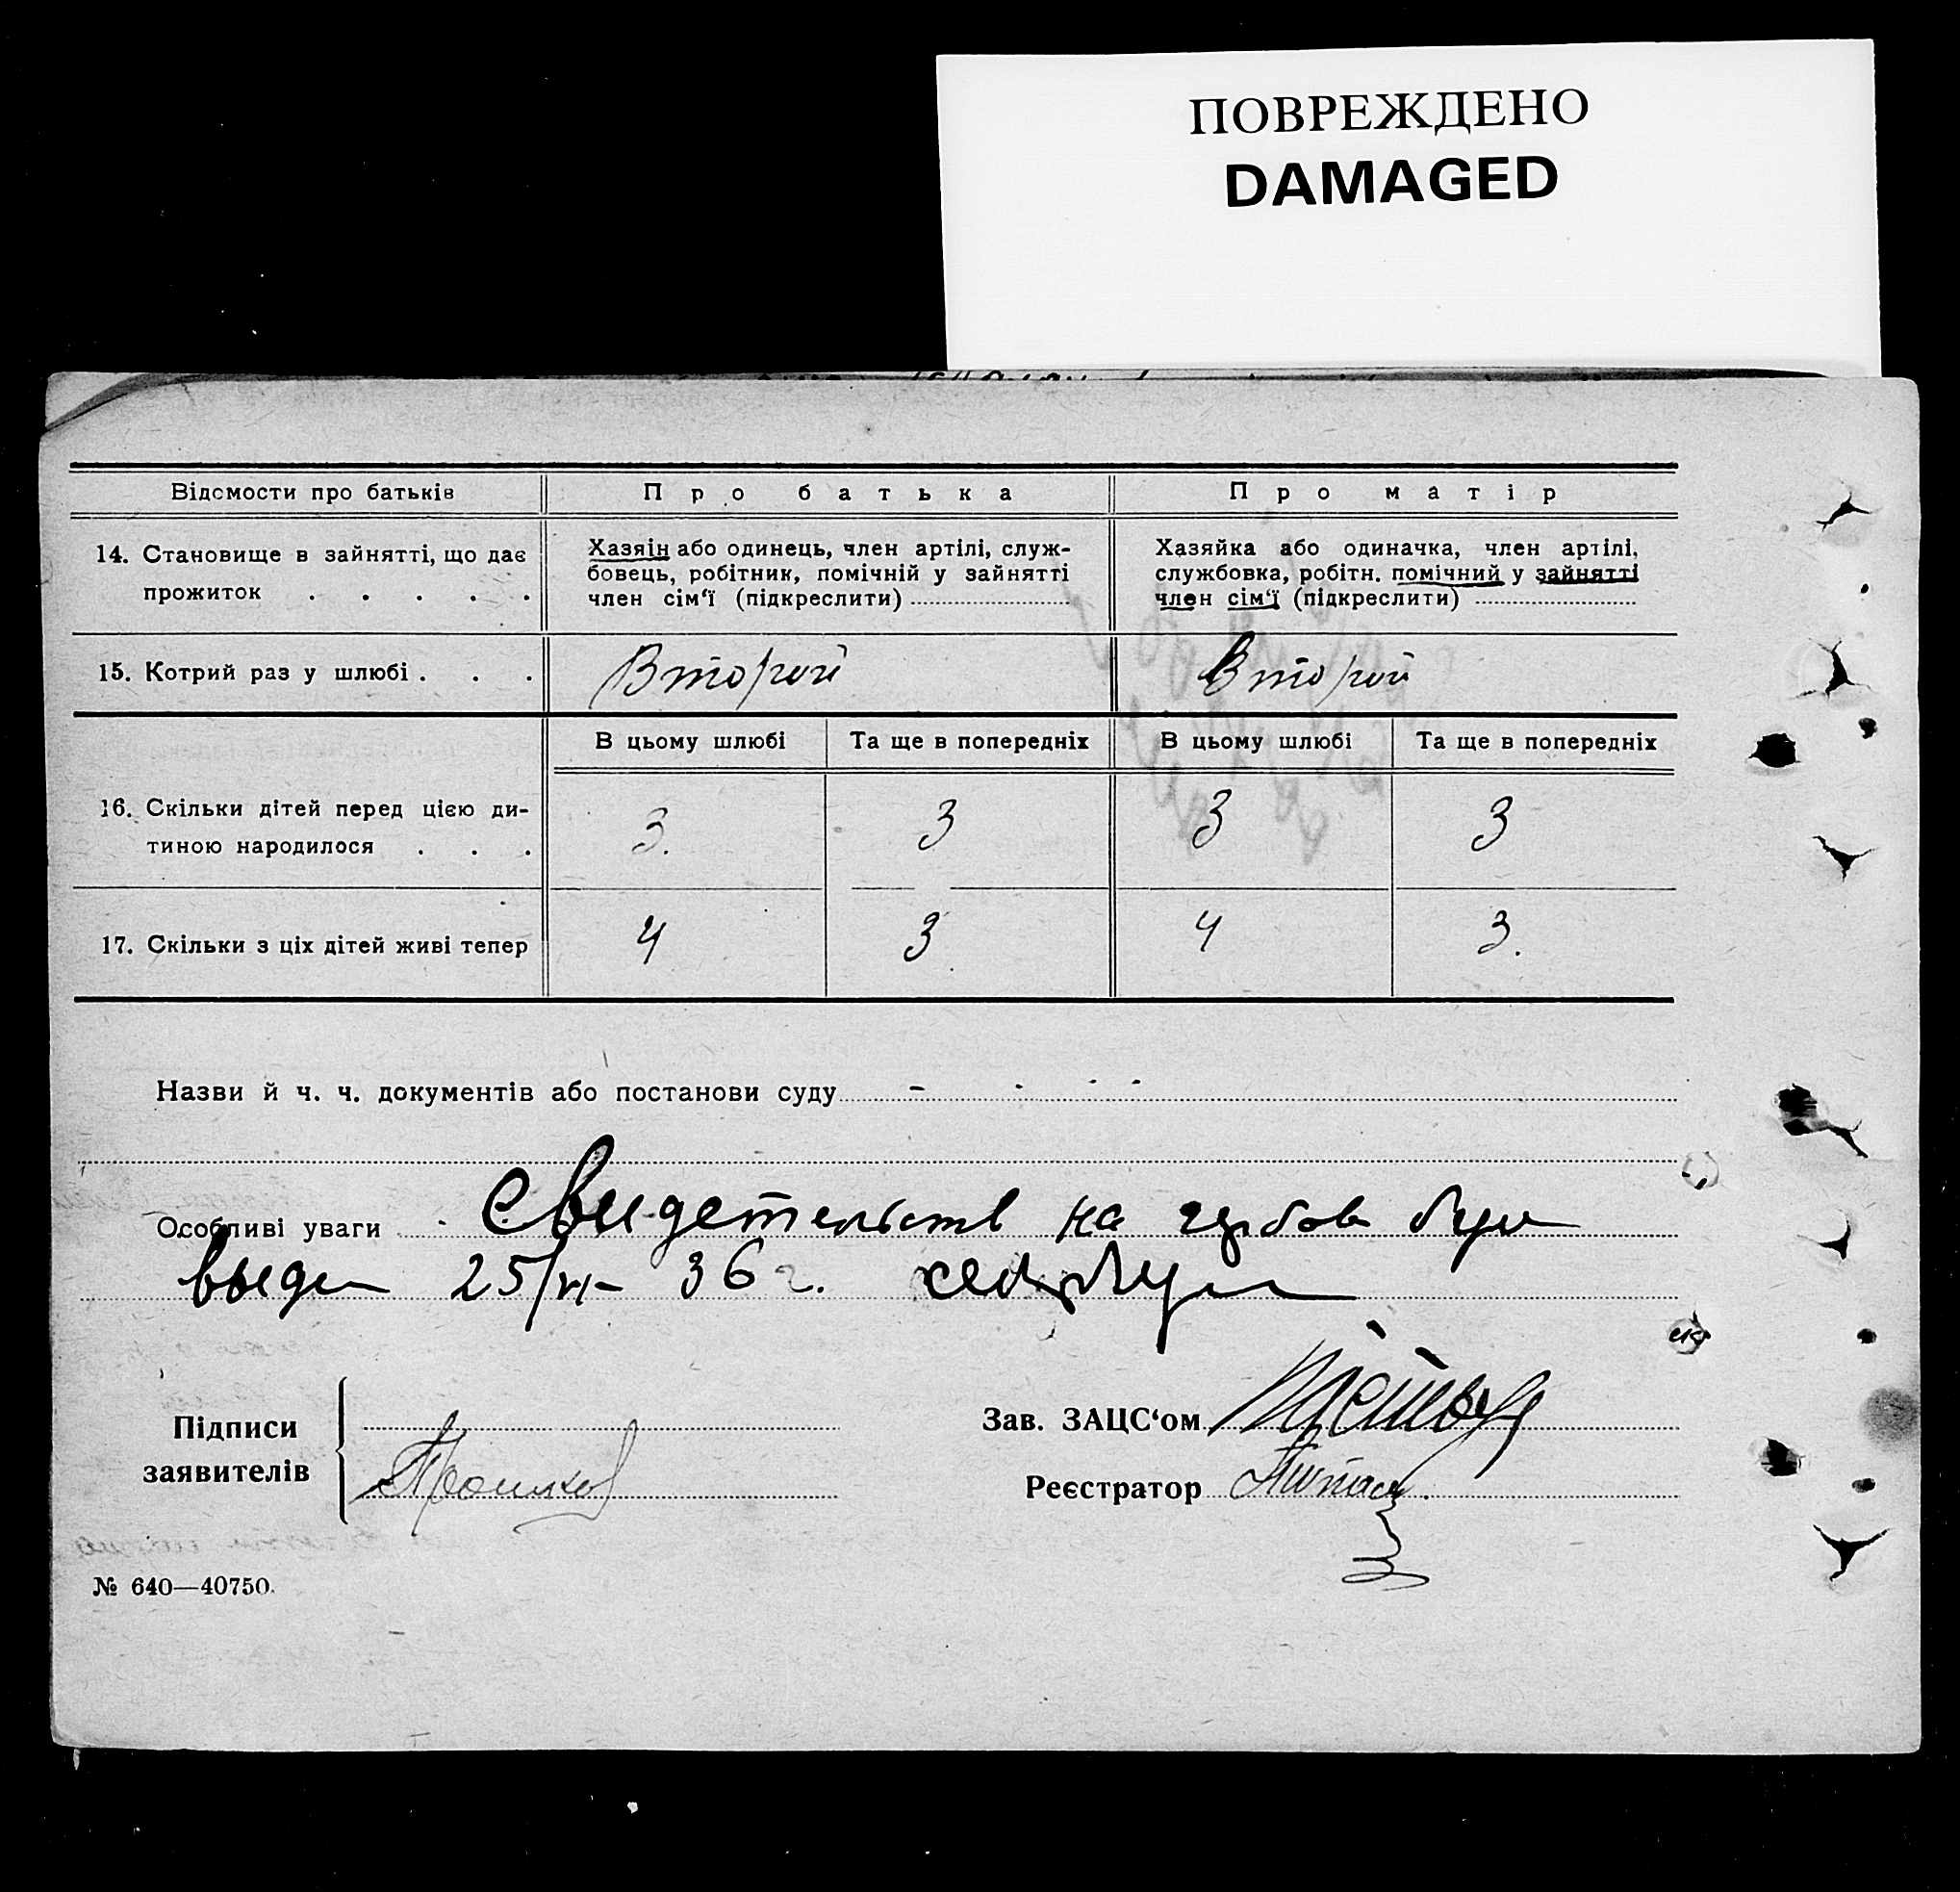 ПОВРЕЖДЕНО
DAMAGED
Відомости про батьків
Про батька
Про матір
14. Становище в зайнятті, що дає
прожиток . . . . .
Хазяін або одинець, член артілі, служ-
бовець, робітник, помічній у зайнятті
член сім‘ї (підкреслити)
Хазяйка або одиначка, член артілі,
службовка, робітн. помічний у зайнятті
член сім‘ї (підкреслити)
15. Котрий раз у шлюбі . . .
Второй
Второй
В цьому шлюбі
Та ще в попередніх
В цьому шлюбі
Та ще в попередніх
16. Скільки дітей перед цією ди-
тиною народилося . . .
3.
3
3
3
17. Скільки з ціх дітей живі тепер
4
3
4
3.
Назви й ч. ч. документів або постанови суду
Особливі уваги
на
25/VI- 36 г.
Підписи
заявителів
Зав. ЗАЦС‘ом
Реєстратор
№ 640—40750.